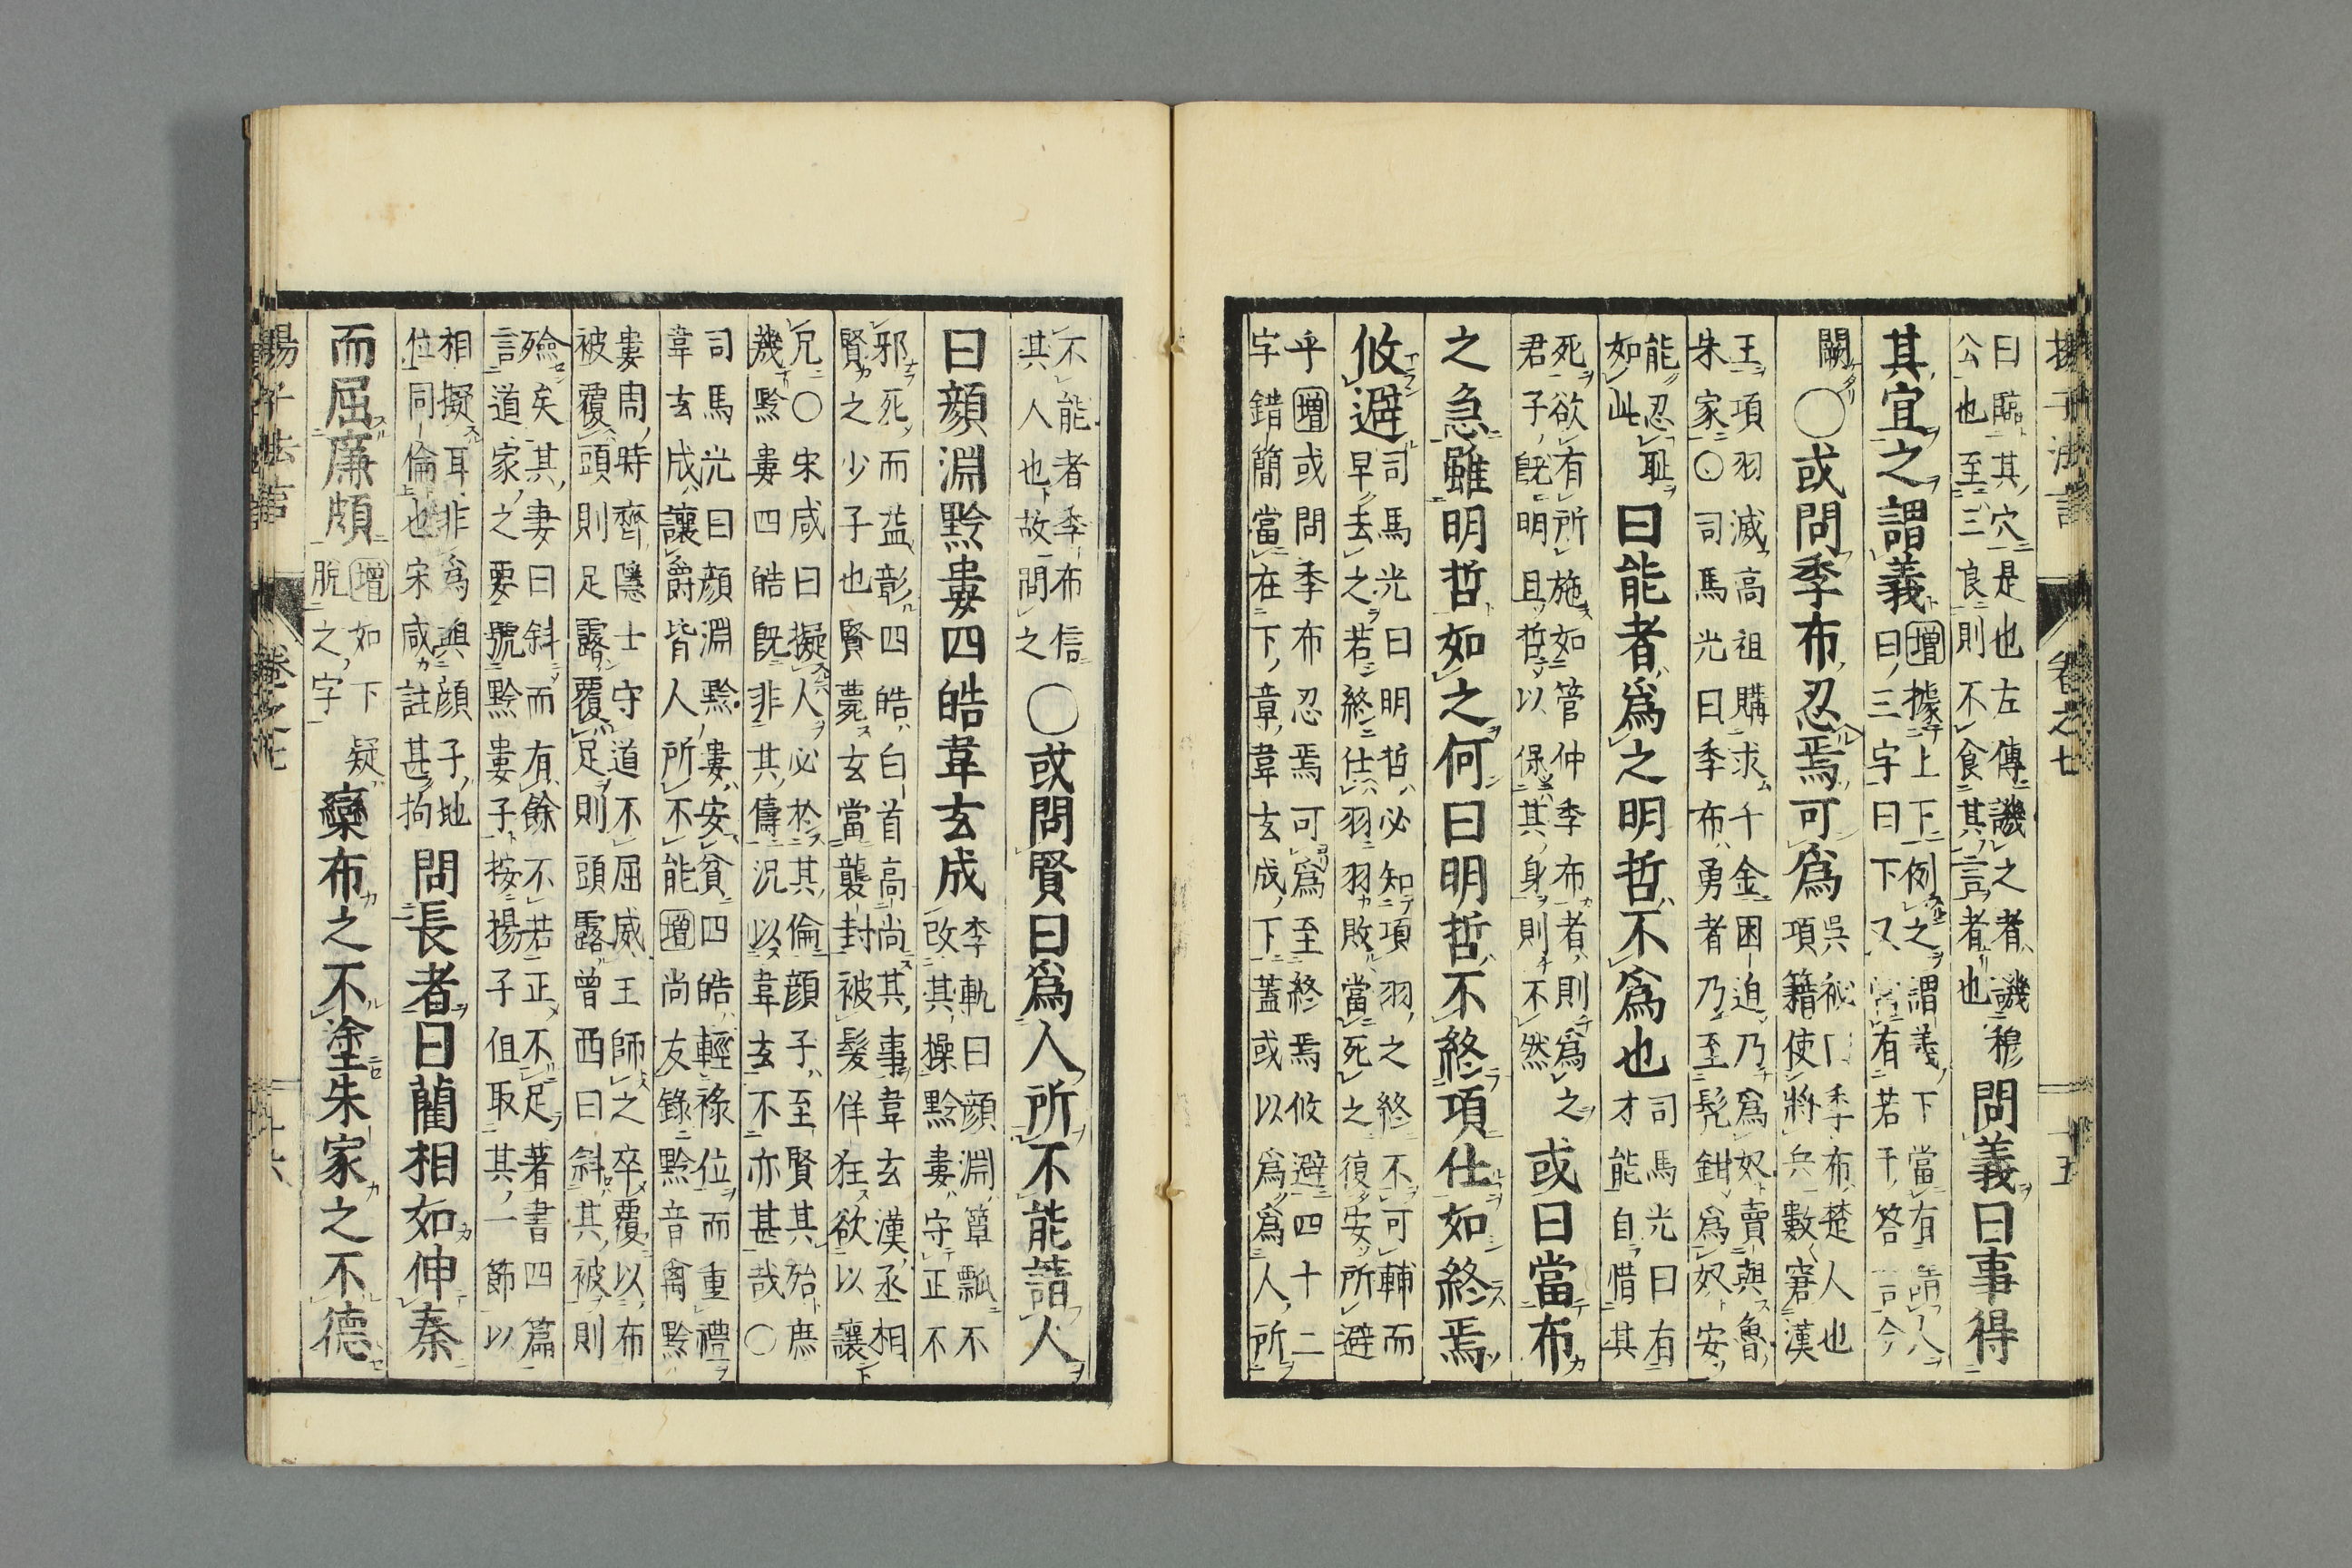 揚子法言 卷之七 十五
曰臨其穴是也左傳譏之者譏穆
公也至三良則不食其言者也
問義曰事得
其宜之謂義
增據上下例之謂義下當有請人
曰三字曰下又當有若干答言今
闕
〇或問季布忍焉可爲
吳祕曰季布楚人也
項籍使將兵數窘漢
王項羽滅高祖購求千金困迫乃爲奴賣與魯
朱家〇司馬光曰季布勇者乃至髡鉗爲奴安
能忍耻
如此
曰能者爲之明哲不爲也
司馬光曰有
才能自惜其
死欲有所施如管仲季布者則爲之
君子既明且哲以保其身則不然
或曰當布
之急雖明哲如之何曰明哲不終項仕如終焉
攸避
司馬光曰明哲必知項羽之終不可輔而
早去之若終仕羽羽敗當死之復安所避
乎增或問季布忍焉可爲至終焉攸避四十二
字錯簡當在下章韋玄成下蓋或以爲爲人所
不能者季布信
其人也故問之
〇或問賢曰爲人所不能請人
曰顔淵黔婁四皓韋玄成
李軌曰顔淵簞瓢不
改其操黔婁守正不
邪死而益彰四皓白首高尚其事韋玄漢丞相
賢之少子也賢薨玄當襲封被髮佯狂欲以讓
兄〇宋咸曰擬人必於其倫顔子至賢其殆庶
幾黔婁四皓既非其儔況以韋玄不亦甚哉〇
司馬光曰顔淵黔婁安貧四皓輕祿位而重禮
韋玄成讓爵皆人所不能增尚友錄黔音禽黔
婁周時齊隱士守道不屈威王師之卒覆以布
被覆頭則足露覆足則頭露曾西曰斜其被則
殮矣其妻曰斜而有餘不若正不足著書四篇
言道家之要號黔婁子按揚子但取其一節以
相擬耳非爲與顔子地
位同倫也宋咸註甚拘
問長者曰藺相如伸秦
而屈廉頗
增如下疑
脫之字
欒布之不塗朱家之不德
揚子法言 卷之七